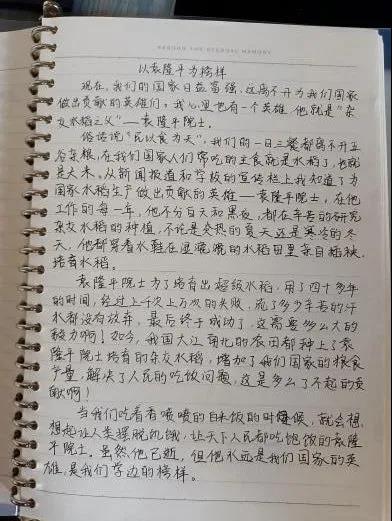 以袁隆平为榜样
现在,我们的国家日益富强,这离不开为我们国家
做出贡献的英雄们,我心里也有一个英雄,他就是“杂
交水稻之父”——袁隆平院士。
俗话说“民以食为天”,我们的一日三餐都离不开五
谷杂粮,在我们国家人们常吃的主食就是水稻了,也就
是大米。从新闻报道和学校的宣传栏上我知道了为
国家水稻生产做出贡献的英雄——袁隆平院士,在他
工作的每一年,他不分白天和黑夜,都在辛苦的研究
杂交水稻的种植,不论是炎热的夏天还是寒冷的冬
天,他都穿着水鞋在湿漉漉的水稻田里亲自插秧,
培育水稻。
袁隆平院士为了培育出超级水稻,用了四十多年
的时间,经过上千次上万次的失败,流了多少辛苦的汗
水都没有放弃,最后终于成功了,这需要多么大的
毅力啊!如今,我国大江南北的农田都种上了袁
隆平院士培育的杂交水稻,增加了我们国家的粮食
产量,解决了人民的吃饭问题,这是多么了不起的贡
献啊!
当我们吃着香喷喷的白米饭的时候,就会想,
想起让人类摆脱饥饿,让天下人民都吃饱饭的袁隆
平院士。虽然他已逝,但他永远是我们国家的英
雄,是我们学边的榜样。